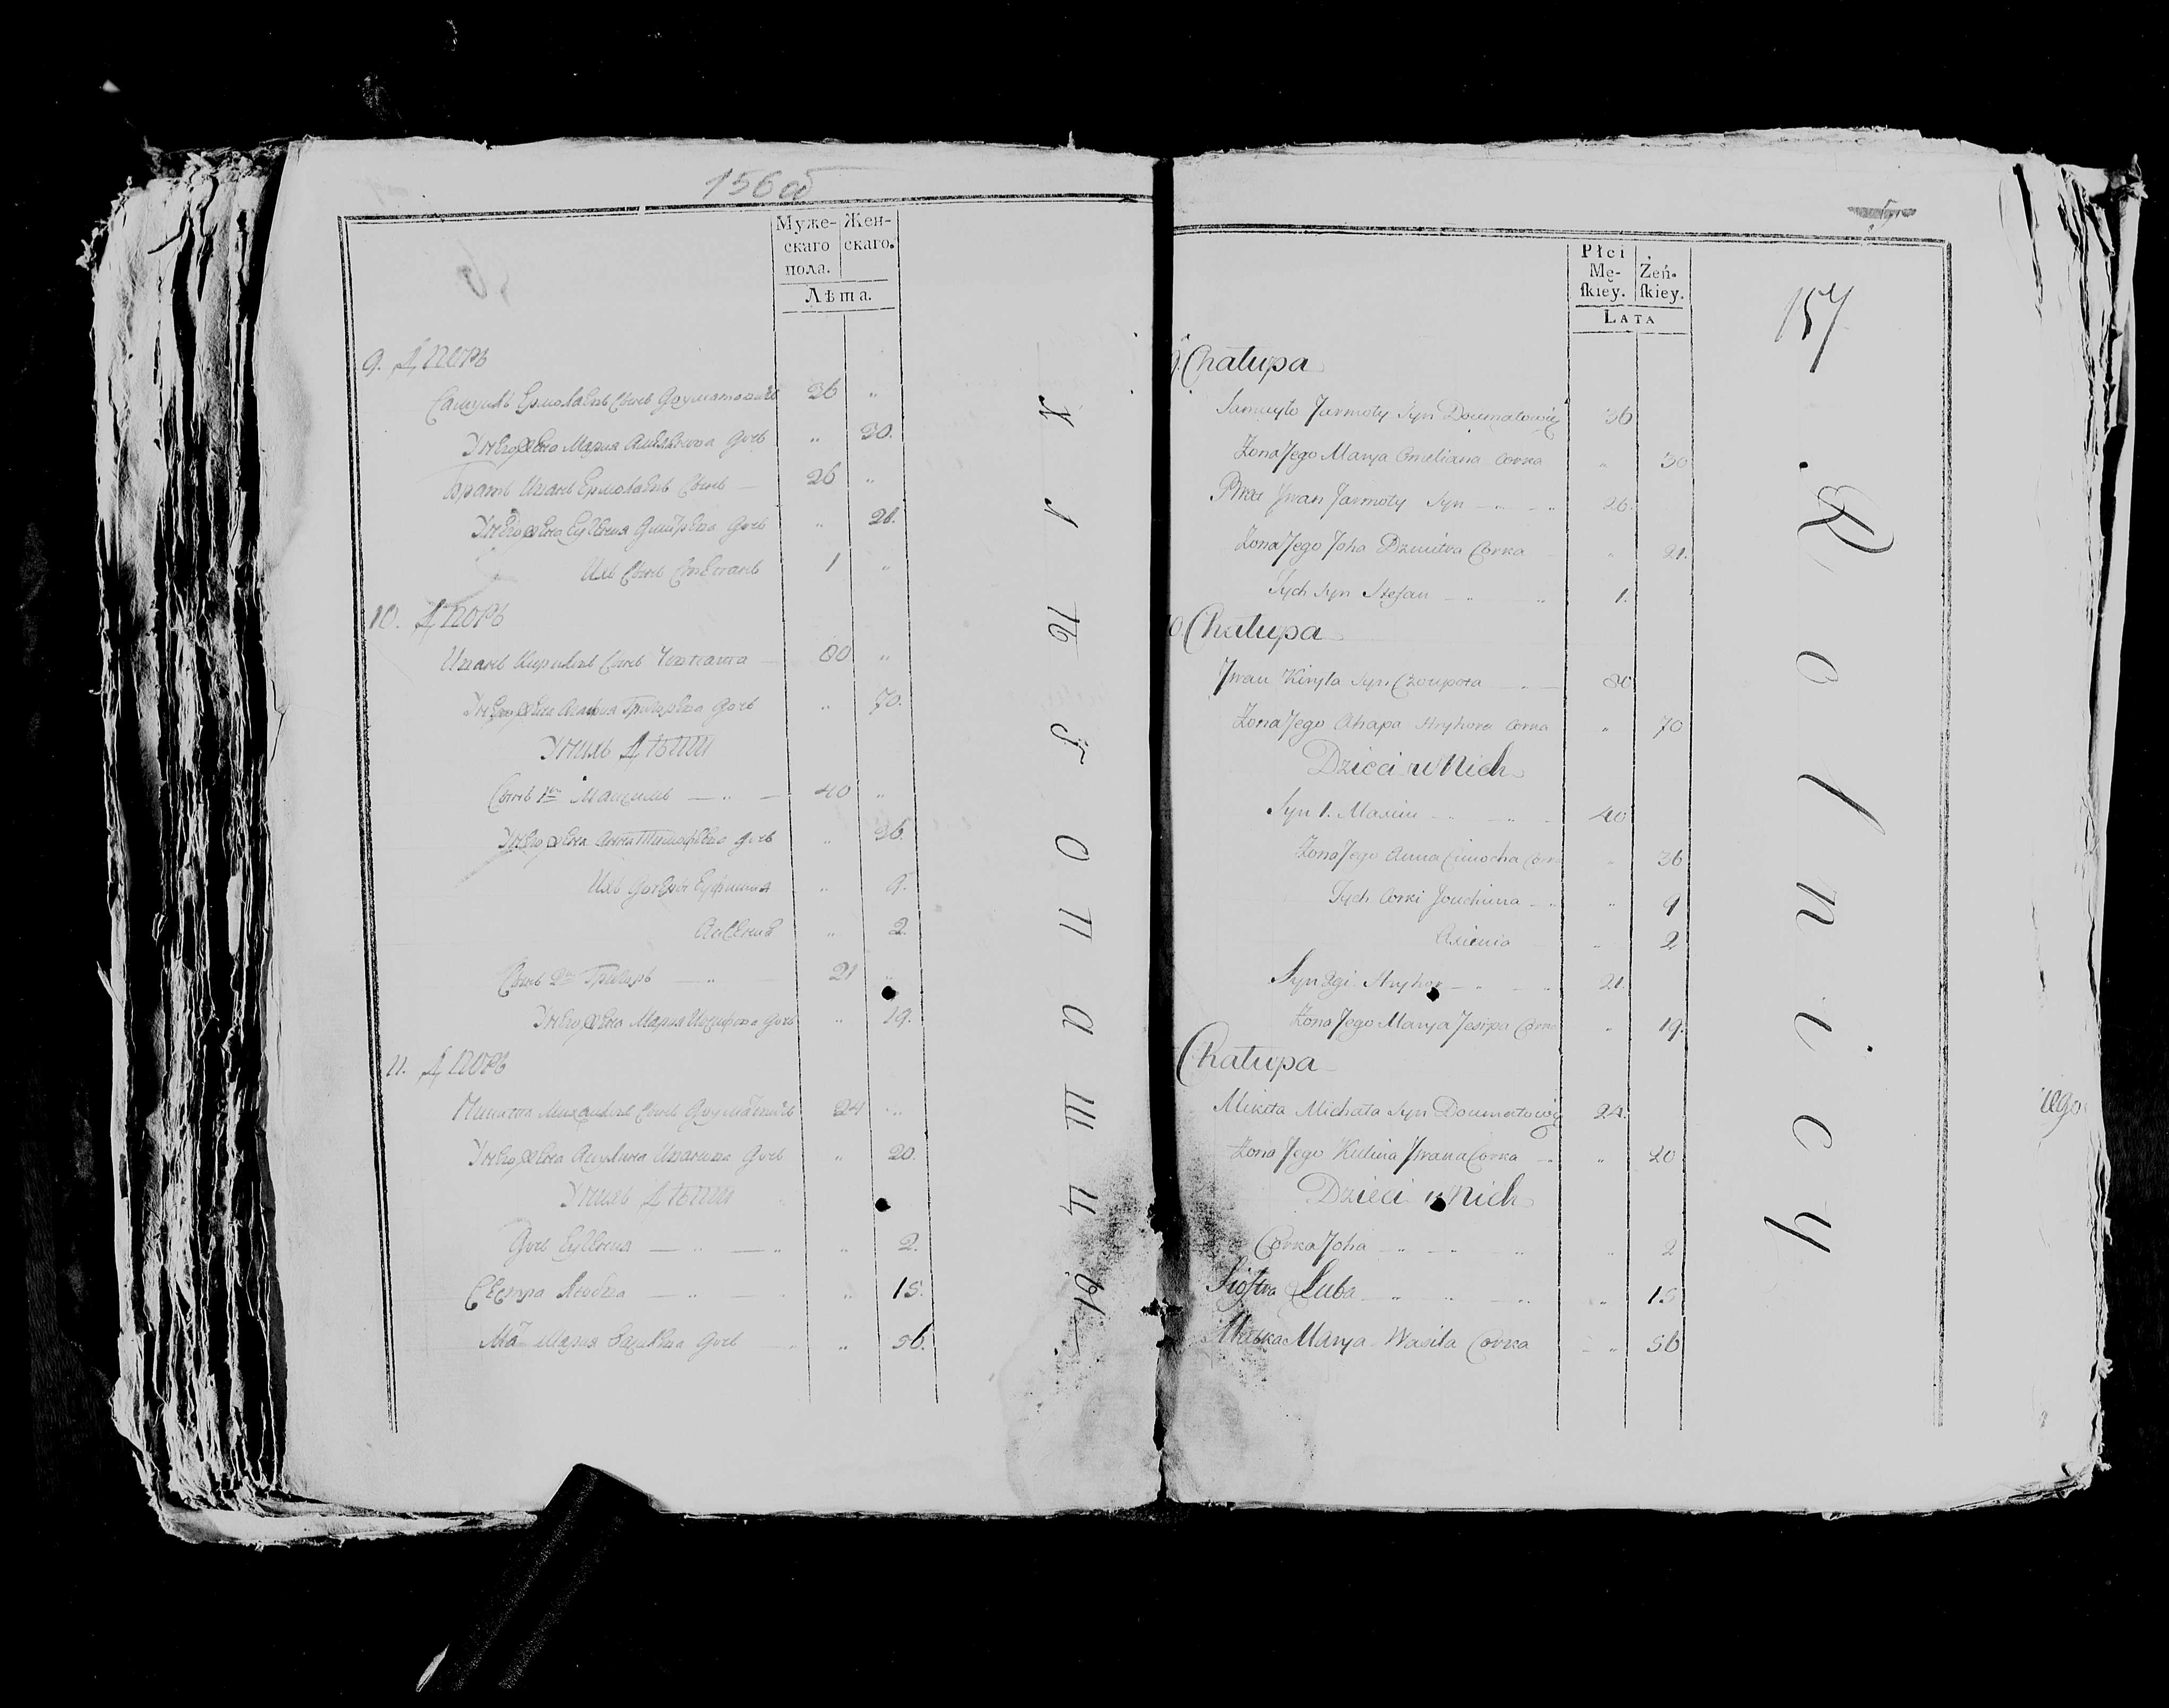 156 об
Муже- Жен-
скаго скаго.
пола.
Лѣта.
9. Дворъ
Самуилъ Ермолаевъ Сынъ Довматовичъ 36 "
У него жена Мария Амельянова дочь " 30.
Братъ Иванъ Ермолаевъ Сынъ — 26 "
У него жена Евгения Дмитрева дочь " 21.
Ихъ Сынъ Степанъ 1 "
10. Дворъ
Иванъ Кириловъ Сынъ 80 "
У него жена Агафия Григорева дочь " 70.
У нихъ Дѣти
Сынъ 1й Максимъ — " — 40 "
У него жена Анна Тимофѣева дочь " 36.
Ихъ дочери Еуфимия " 9.
Аксения " 2.
Сынъ 2й Григоръ — " — 21 "
У него жена Мария Иосифова дочь " 19.
11. Дворъ
Никита Михайловъ Сынъ Довматовичъ 24 "
У него жена Акулина Иванова дочь " 20.
У нихъ Дѣти
Дочь Евгения — " — " " 2.
Сестра Любва — " — " " 15.
Мать Мария Василева дочь — " " 56.
Хлѣбопашцы
Płci
Mę- Żeń-
skiey. skiey.
LATA
157
9. Chałupa
Samuyło Jarmoły Syn Doumatowicz 36
Żona Jego Marya Omeliana Corka " 30
Brat Jwan Jarmoły Syn — " — " 26.
Żona Jego Joha Dzmitra Corka " 21.
Tych Syn Stefan — " — " 1.
10 Chałupa
Jwan Kiryła Syn Czoupora — " — 80
Żona Jego Ahapa Hryhora Corka " 70
Dzieci u Nich
Syn 1. Maxim — " — " 40
Żona Jego Anna Cimocha Corka " 36
Tych Corki Jouchima — " " 9
Axienia " 2
Syn 2gi Hryhor — " — " 21.
Żona Jego Marya Jesipa Corka " 19.
Chałupa
Mikita Michała Syn Doumatowicz 24.
Żona Jego Kulina Jwana Corka — " " 20
Dzieci u Nich
Corka Joha — " — " — " " 2
Siostra Luba — " — " — " " 15
Matka Marya Wasila Corka — " 56
Rolnicy